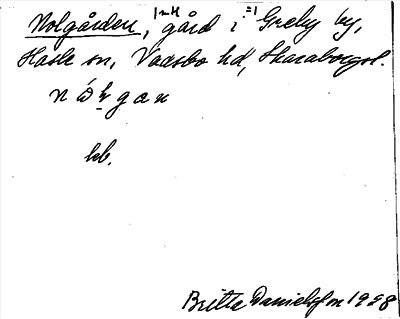 Nolgården, gård i Greby by,
Hasle sn, Vadsbo hd, Skaraborgsl.
kb.
Britta Danielsson 1928